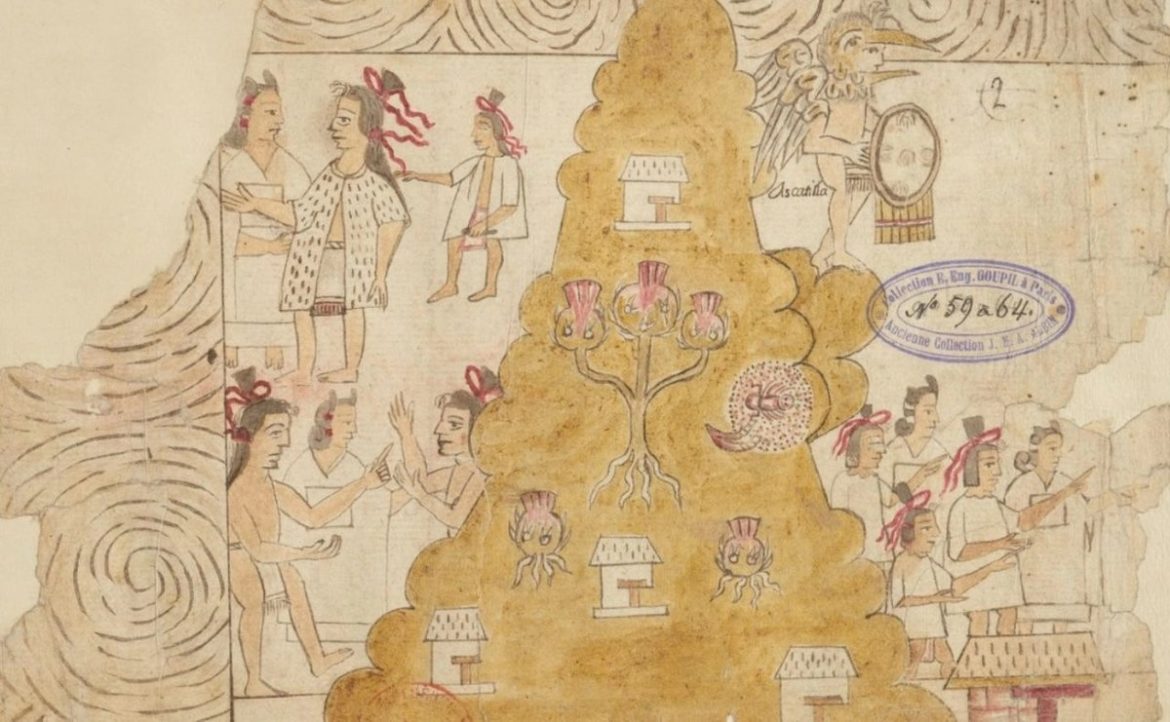 2
Ascatitla
Collection E. Eug. GOUPIL à Paris
Nº 59 à 64.
Ancienne Collection J. M. A. AUBIN